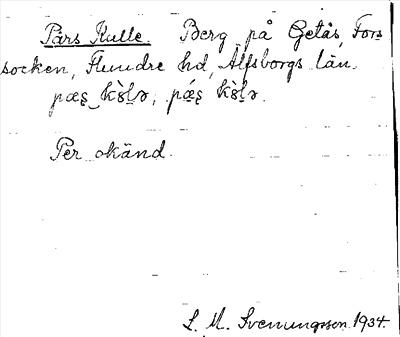 Pärs Kulle. Berg på Getås, Fors
socken, Flundre hd, Älfsborgs län.
Per okänd.
S. M. Svenungsson 1934.